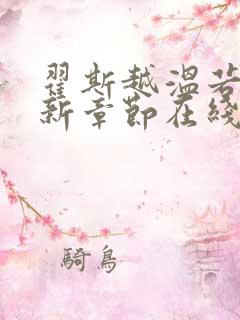 翟斯越溫若
新章節在綫
騎鳥